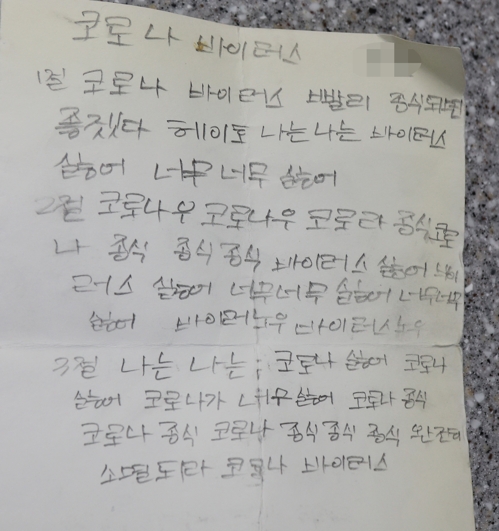 코로나 바이러스
1절 코로나 바이러스 빨리 종식되면
좋겠다 헤이토 나는나는 바이러스
싫어 너무 너무 싫어
2절 코로나우 코로나우 코로라 종식코로
나 종식 종식종식 바이러스 싫어 바이
러스 싫어 너무너무 싫어 너무너무
싫어 바이러노우 바이러스노우
3절 나는 나는; 코로나 싫어 코로나
싫어 코로나가 너무싫어 코로나 종식
코로나 종식 코로나 종식종식 종식 완전히
소멸되라 코로나 바이러스